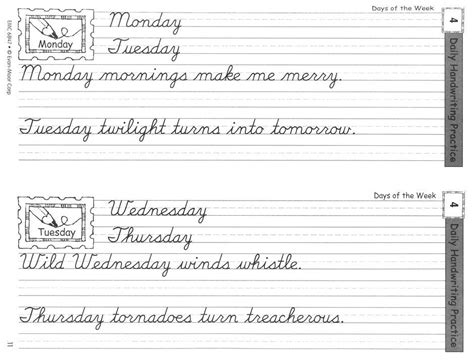 Days of the Week
4
Daily Handwriting Practice
Monday
Monday
Tuesday
Monday mornings make me merry.
Tuesday twilight turns into tomorrow.
EMC 6947 • © Evan-Moor Corp.
Days of the Week
4
Daily Handwriting Practice
Tuesday
Wednesday
Thursday
Wild Wednesday winds whistle.
Thursday tornadoes turn treacherous.
11